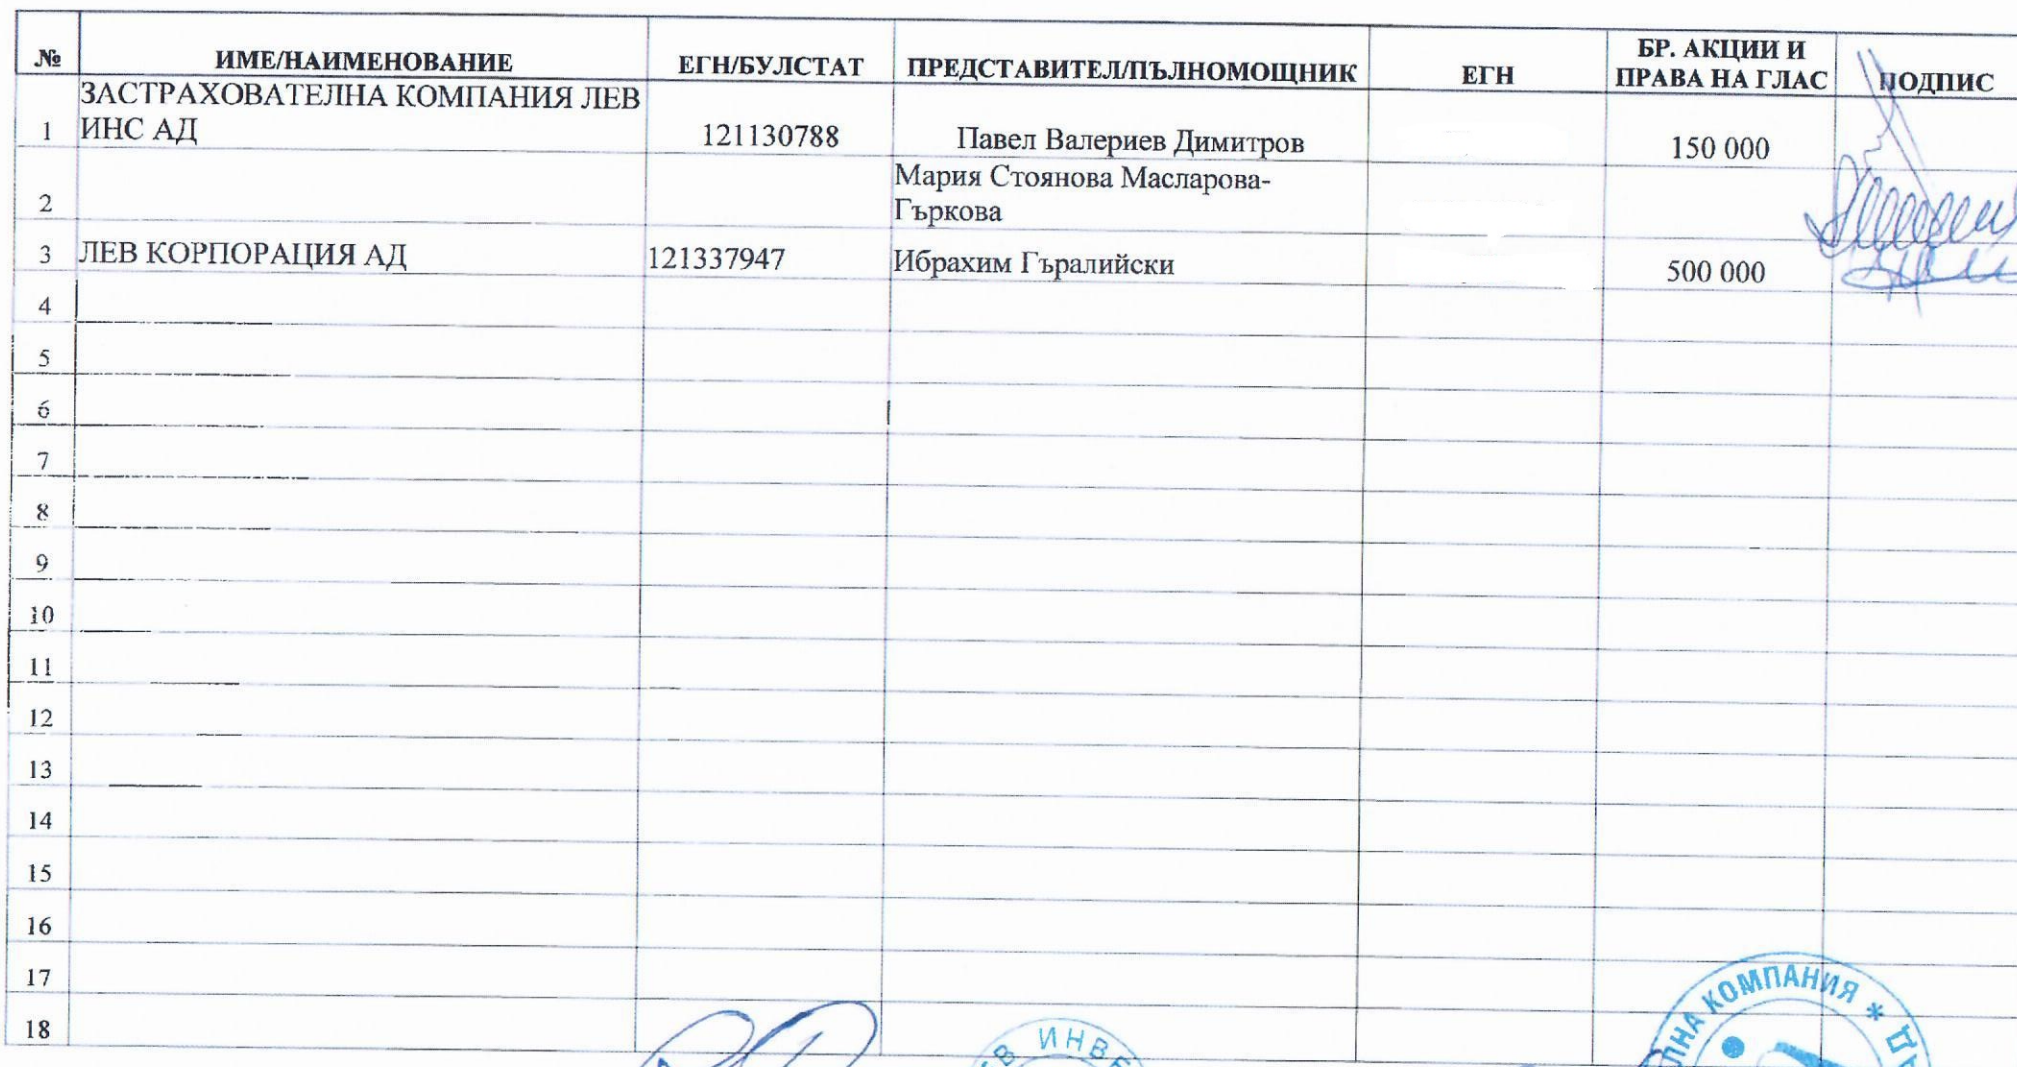 № ИМЕ/НАИМЕНОВАНИЕ ЕГН/БУЛСТАТ ПРЕДСТАВИТЕЛ/ПЪЛНОМОЩНИК ЕГН БР. АКЦИИ И ПРАВА НА ГЛАС ПОДПИС
1 ЗАСТРАХОВАТЕЛНА КОМПАНИЯ ЛЕВ ИНС АД 121130788 Павел Валериев Димитров 150 000
2 Мария Стоянова Масларова-Гъркова
3 ЛЕВ КОРПОРАЦИЯ АД 121337947 Ибрахим Гъралийски 500 000
4
5
6
7
8
9
10
11
12
13
14
15
16
17
18
КОМПАНИЯ * АД